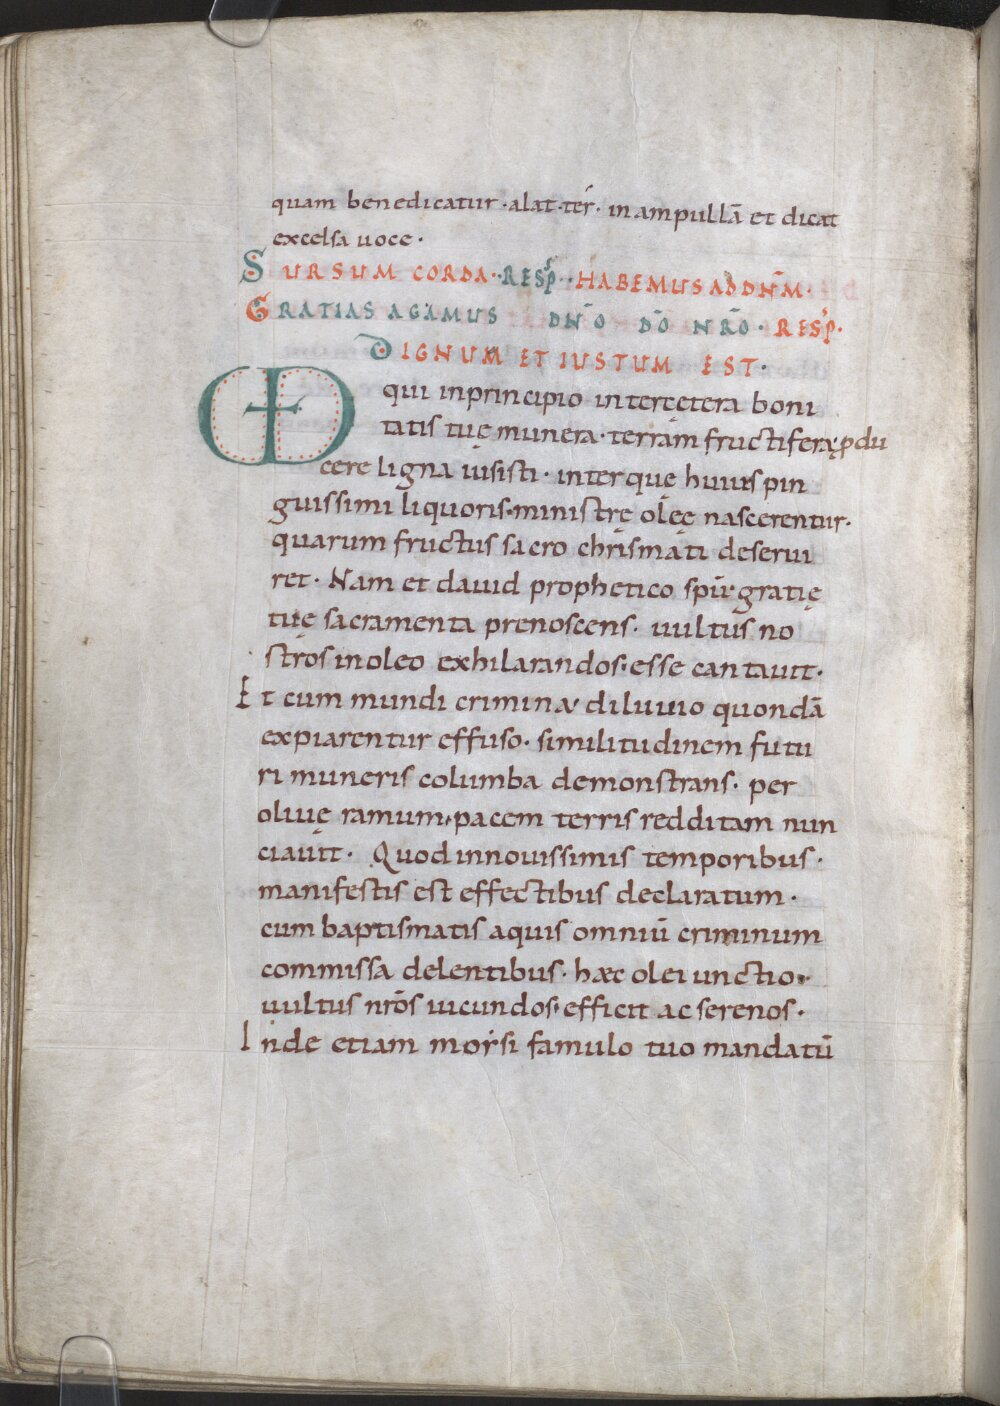 quam benedicatur · alat · ter̄ · in ampullā et dicat
excelsa uoce ·
SURSUM CORDA · RESP̄ · HABEMUS AD DN̄M ·
GRATIAS AGAMUS DN̄O DŌ NR̄O · RESP̄ ·
DIGNUM ET IUSTUM EST ·
qui inprincipio intercętera boni
tatis tuę munera · terram fructiferā ꝓdu
cere ligna iusisti · interque huius pin
guissimi liquoris · ministrę olęę nascerentur ·
quarum fructus sacro chrismati deserui
ret · Nam et dauid prophetico sp̄u gratię
tuę sacramenta prenoscens · uultus no
stros in oleo exhilarandos · esse cantauit ·
Et cum mundi crimina diluuio quondā
expiarentur effuso · similitudinem futu
ri muneris columba demonstrans · per
oliuę ramum · pacem terris redditam nun
ciauit · Quod innouissimis temporibus ·
manifestis est effectibus declaratum ·
cum baptismatis aquis omniū criminum
commissa delentibus · hæc olei unctio ·
uultus nr̄os iucundos · efficit ac serenos ·
Inde etiam moysi famulo tuo mandatū